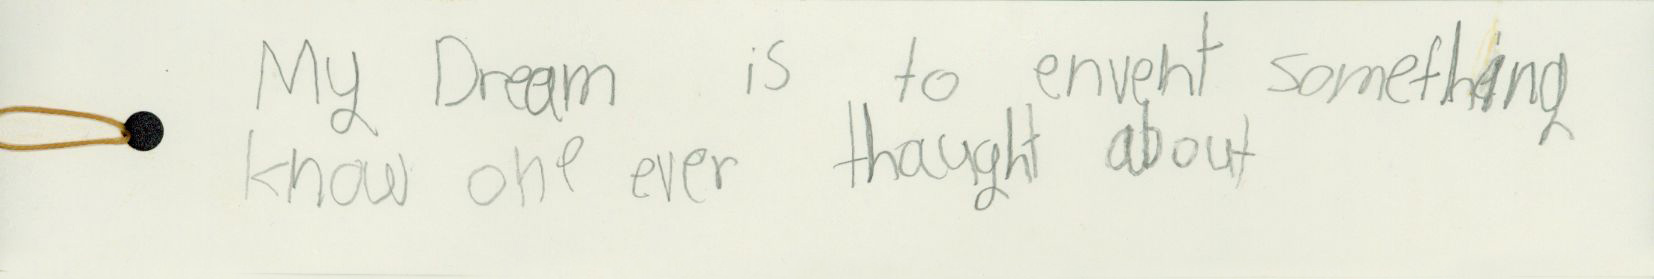 My Dream is to envent something
know one ever thaught about